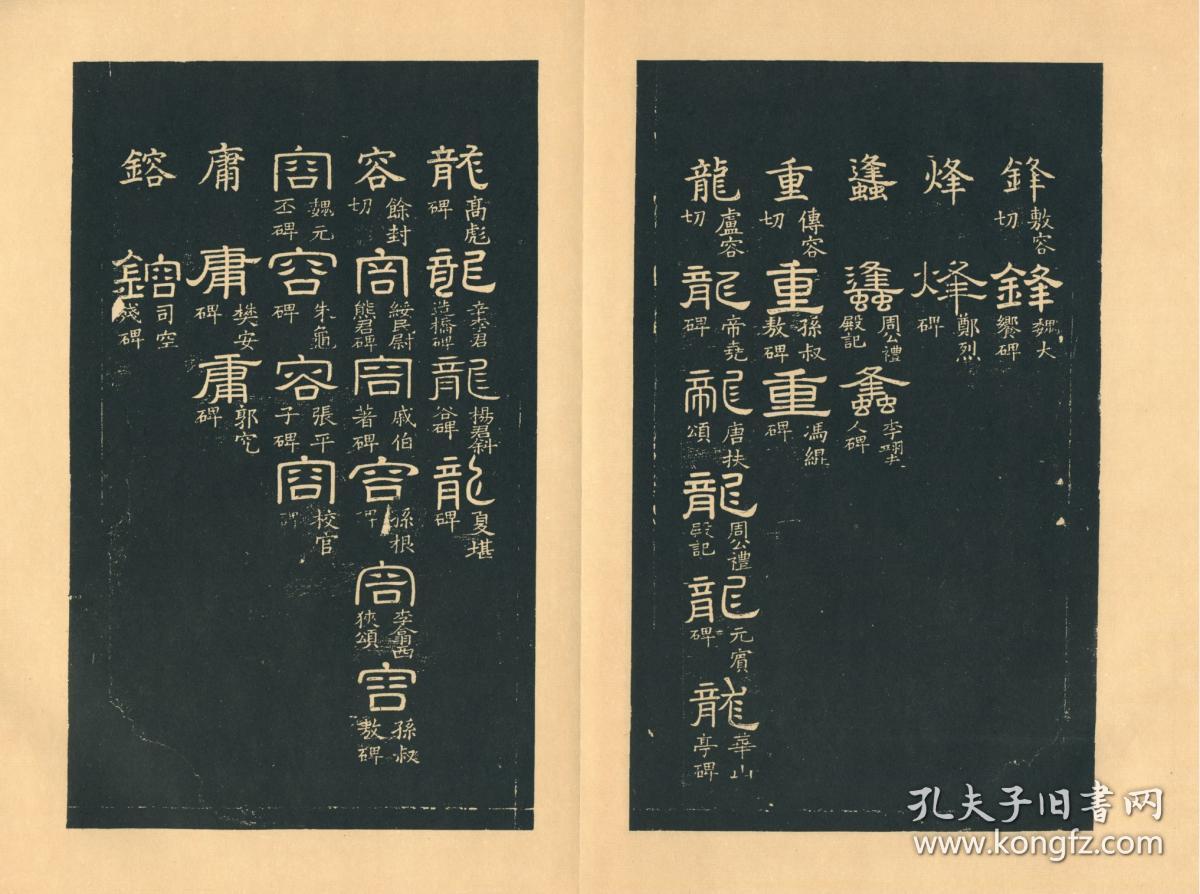 鋒敷容切鋒魏大饗碑
烽烽鄭烈碑
蠭蠭周公禮殿記蠭李翊夫人碑
重傳容切重孫叔敖碑重馮緄碑
龍盧容切龍帝堯碑龍唐扶頌龍周公禮殿記龍元賓碑龍華山亭碑
龍高彪碑龍辛李君造橋碑龍楊君斜谷碑龍夏堪碑
容餘封切容綏民尉熊君碑容戚伯著碑容孫根碑容李翕西狹頌容孫叔敖碑
容魏元丕碑容朱龜碑容張平子碑容校官碑
庸庸樊安碑庸郭究碑
鎔鎔司空殘碑
孔夫子旧书网
www.kongfz.com